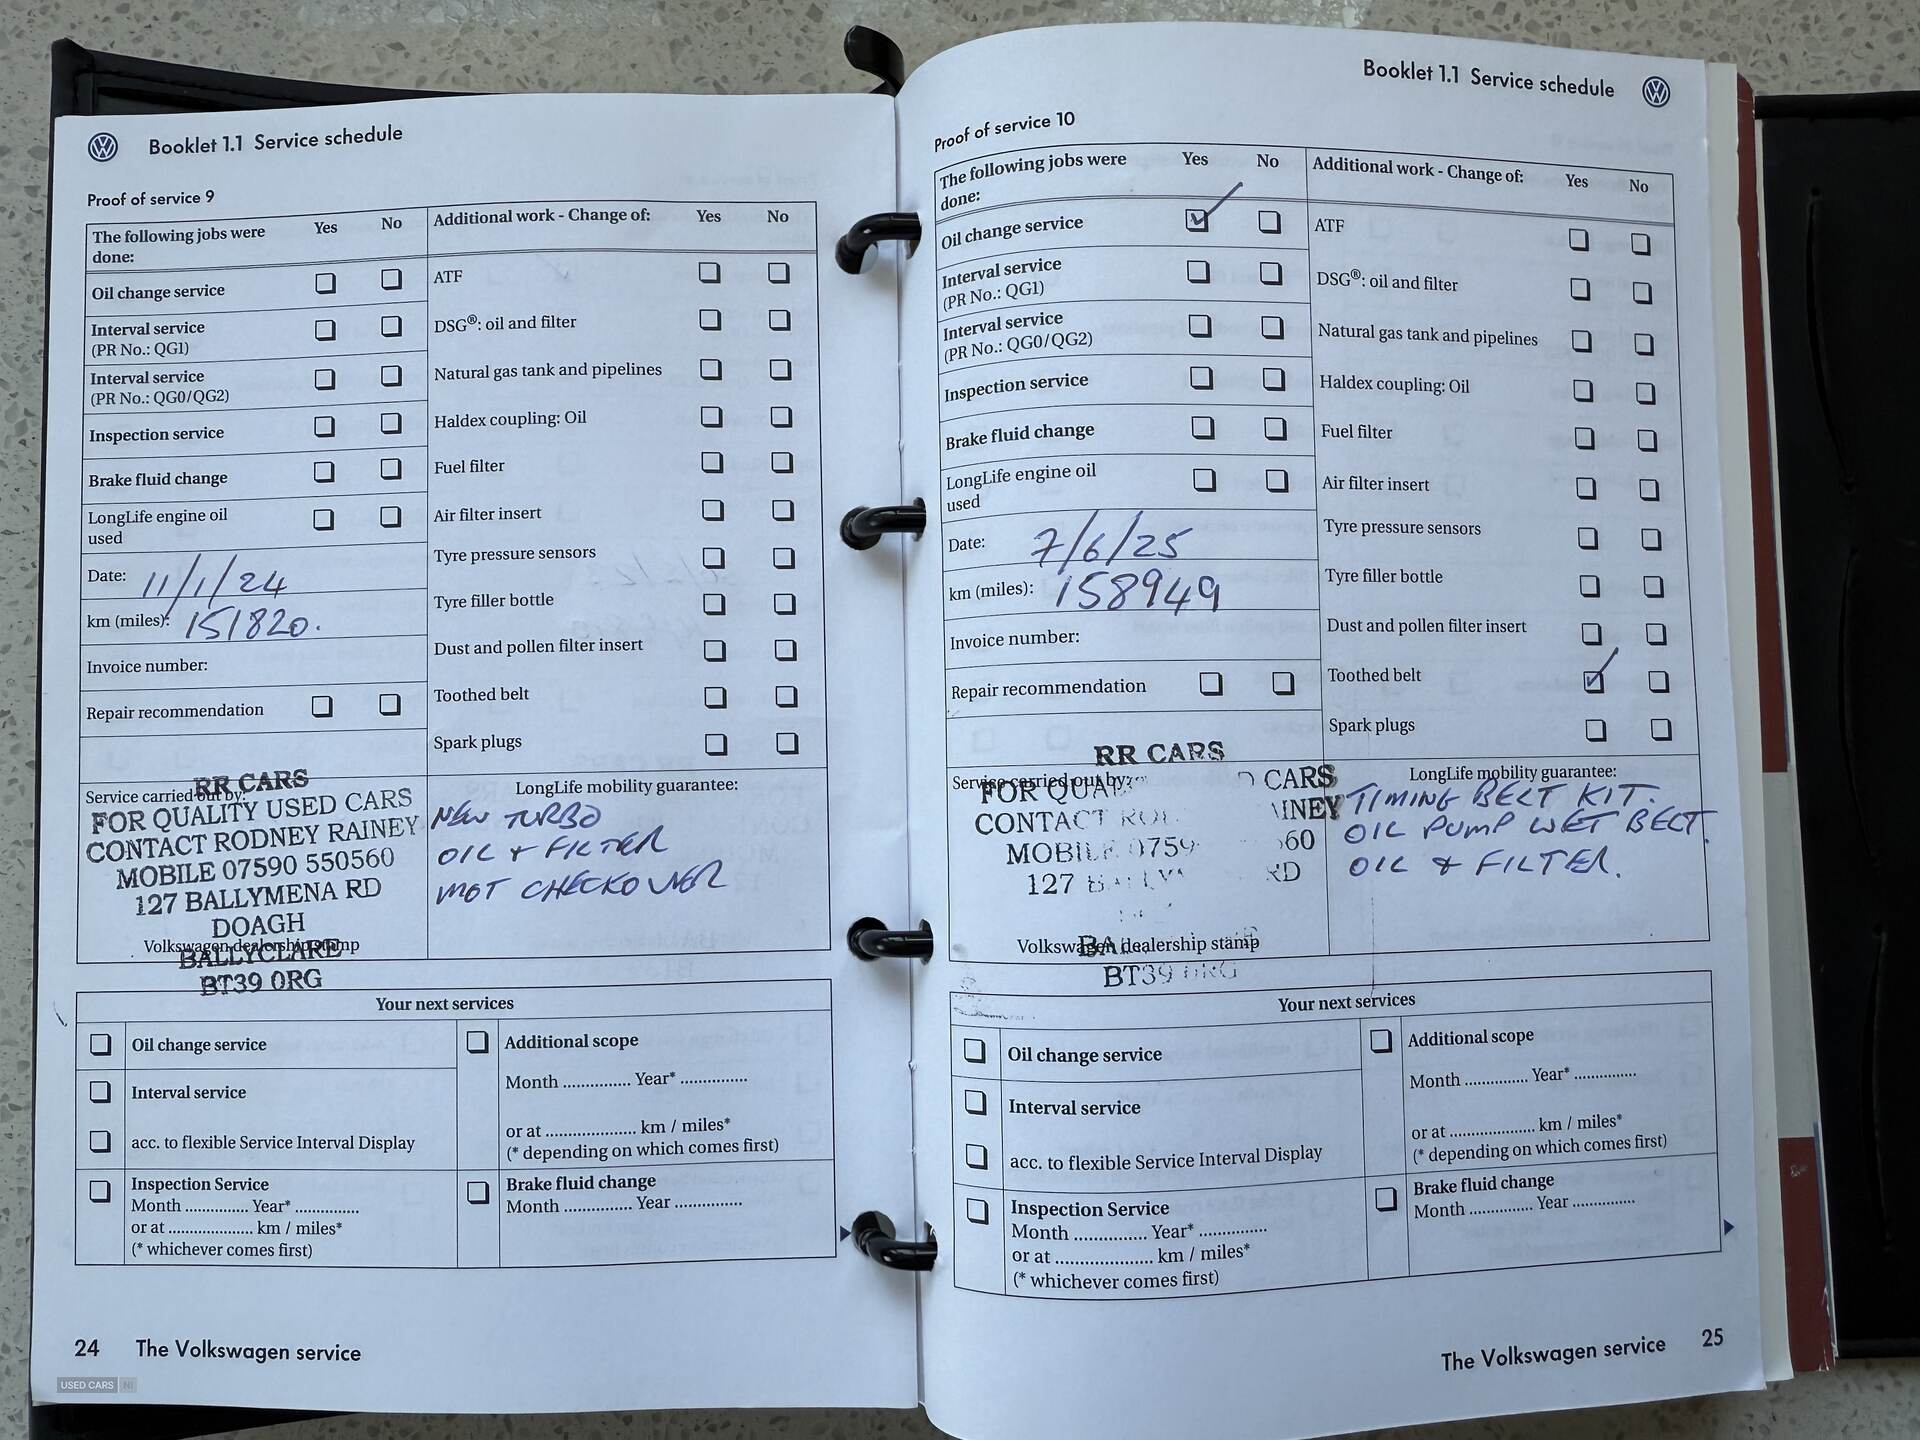 Booklet 1.1 Service schedule
Proof of service 9
The following jobs were done: Yes No
Oil change service
Interval service
(PR No.: QG1)
Interval service
(PR No.: QG0/QG2)
Inspection service
Brake fluid change
LongLife engine oil
used
Date: 11/1/24
km (miles): 151820.
Invoice number:
Repair recommendation
Additional work - Change of: Yes No
ATF
DSG®: oil and filter
Natural gas tank and pipelines
Haldex coupling: Oil
Fuel filter
Air filter insert
Tyre pressure sensors
Tyre filler bottle
Dust and pollen filter insert
Toothed belt
Spark plugs
Service carried out by:
RR CARS
FOR QUALITY USED CARS
CONTACT RODNEY RAINEY
MOBILE 07590 550560
127 BALLYMENA RD
DOAGH
Volkswagen dealership stamp
BALLYCLARE
BT39 0RG
LongLife mobility guarantee:
NEW TURBO
OIL & FILTER
MOT CHECKOVER
Your next services
Oil change service
Interval service
acc. to flexible Service Interval Display
Inspection Service
Month ............... Year* ...............
or at .................... km / miles*
(* whichever comes first)
Additional scope
Month ............... Year* ...............
or at .................... km / miles*
(* depending on which comes first)
Brake fluid change
Month ............... Year ...............
24 The Volkswagen service
USED CARS NI
Booklet 1.1 Service schedule
Proof of service 10
The following jobs were done: Yes No
Oil change service
Interval service
(PR No.: QG1)
Interval service
(PR No.: QG0/QG2)
Inspection service
Brake fluid change
LongLife engine oil
used
Date: 7/6/25
km (miles): 158949
Invoice number:
Repair recommendation
Additional work - Change of: Yes No
ATF
DSG®: oil and filter
Natural gas tank and pipelines
Haldex coupling: Oil
Fuel filter
Air filter insert
Tyre pressure sensors
Tyre filler bottle
Dust and pollen filter insert
Toothed belt
Spark plugs
RR CARS
Service carried out by:
FOR CARS
CONTACT
MOBILE
127 RD
Volkswagen dealership stamp
BT39 0RG
LongLife mobility guarantee:
TIMING BELT KIT.
OIL PUMP WET BELT.
OIL & FILTER.
Your next services
Oil change service
Interval service
acc. to flexible Service Interval Display
Inspection Service
Month ............... Year* ...............
or at .................... km / miles*
(* whichever comes first)
Additional scope
Month ............... Year* ...............
or at .................... km / miles*
(* depending on which comes first)
Brake fluid change
Month ............... Year ...............
The Volkswagen service 25